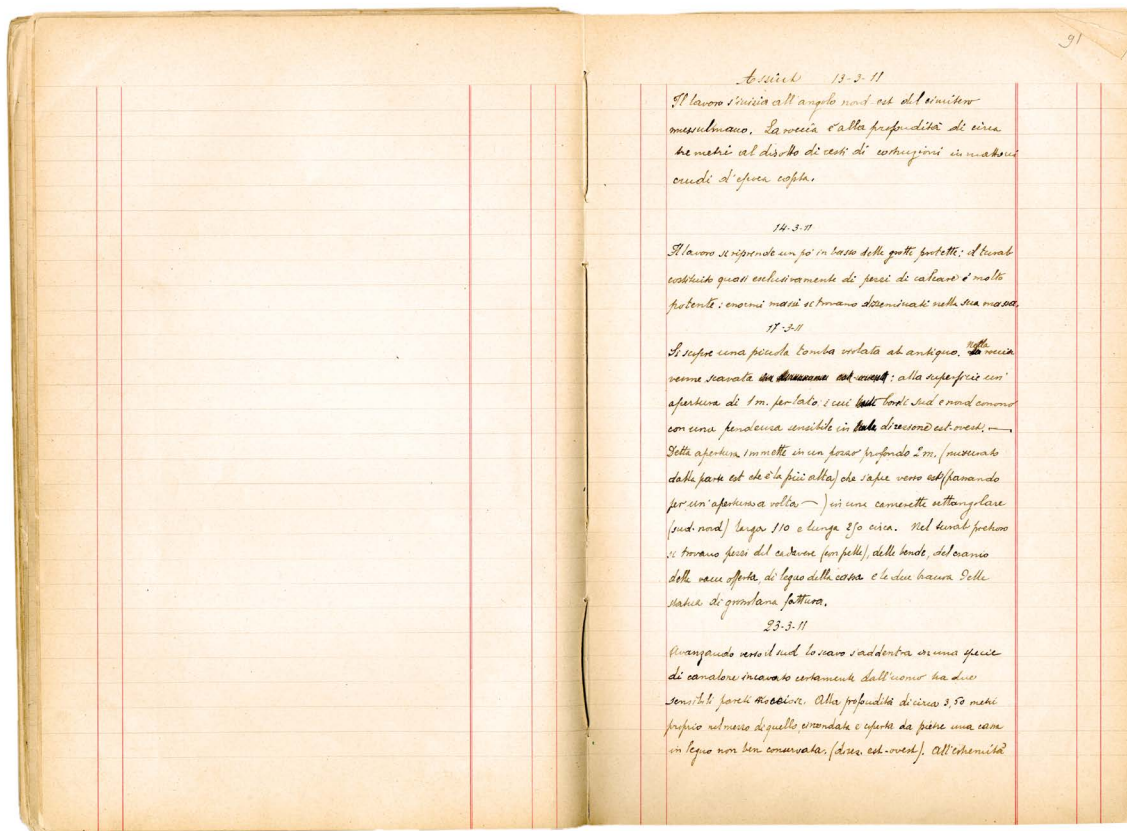 91
Assiut 13-3-11
Il lavoro s'inizia all'angolo nord-est del cimitero
mussulmano. La roccia è alla profondità di circa
tre metri al disotto di resti di costruzioni in mattoni
crudi d'epoca copta.
14-3-11
Il lavoro si riprende un pò in basso delle grotte protette: il turab
costituito quasi esclusivamente di pezzi di calcare è molto
potente: enormi massi si trovano disseminati nella sua massa.
17-3-11
Si scopre una piccola tomba violata ab antiquo. Nella roccia
venne scavata : alla superficie un'
apertura di 1 m. per lato, i cui bordi sud e nord corrono
con una pendenza sensibile in direzione est-ovest. —
Detta apertura immette in un pozzo profondo 2 m. (misurato
dalla parte est che è la più alta) che s'apre verso est (passando
per un'apertura a volta ) in una cameretta rettangolare
(sud-nord) larga 110 e lunga 250 circa. Nel turab
si trovano pezzi del cadavere (con pelle), delle bende, del cranio
delle vasi offerta, di legno della cassa e le due braccia delle
statua di grossolana fattura.
23-3-11
Avanzando verso il sud lo scavo s'addentra in una specie
di canalone incavato certamente dall'uomo tra due
sensibili pareti rocciose. Alla profondità di circa 3,50 metri
proprio nel mezzo di quello, circondata e coperta da pietre una cassa
in legno non ben conservata. (direz. est-ovest). All'estremità